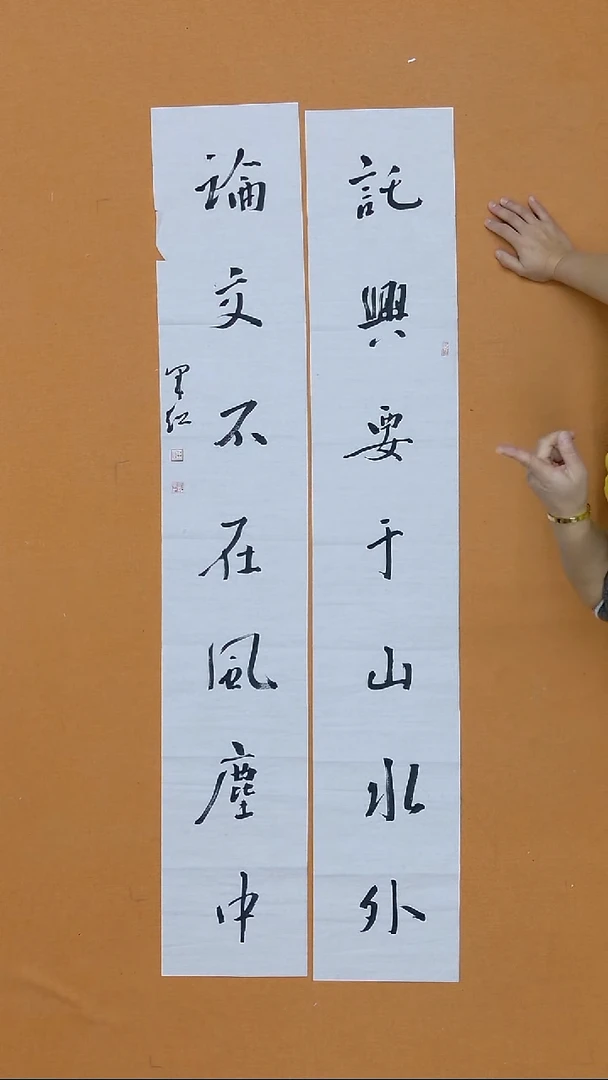 託興要于山水外
論文不在風塵中